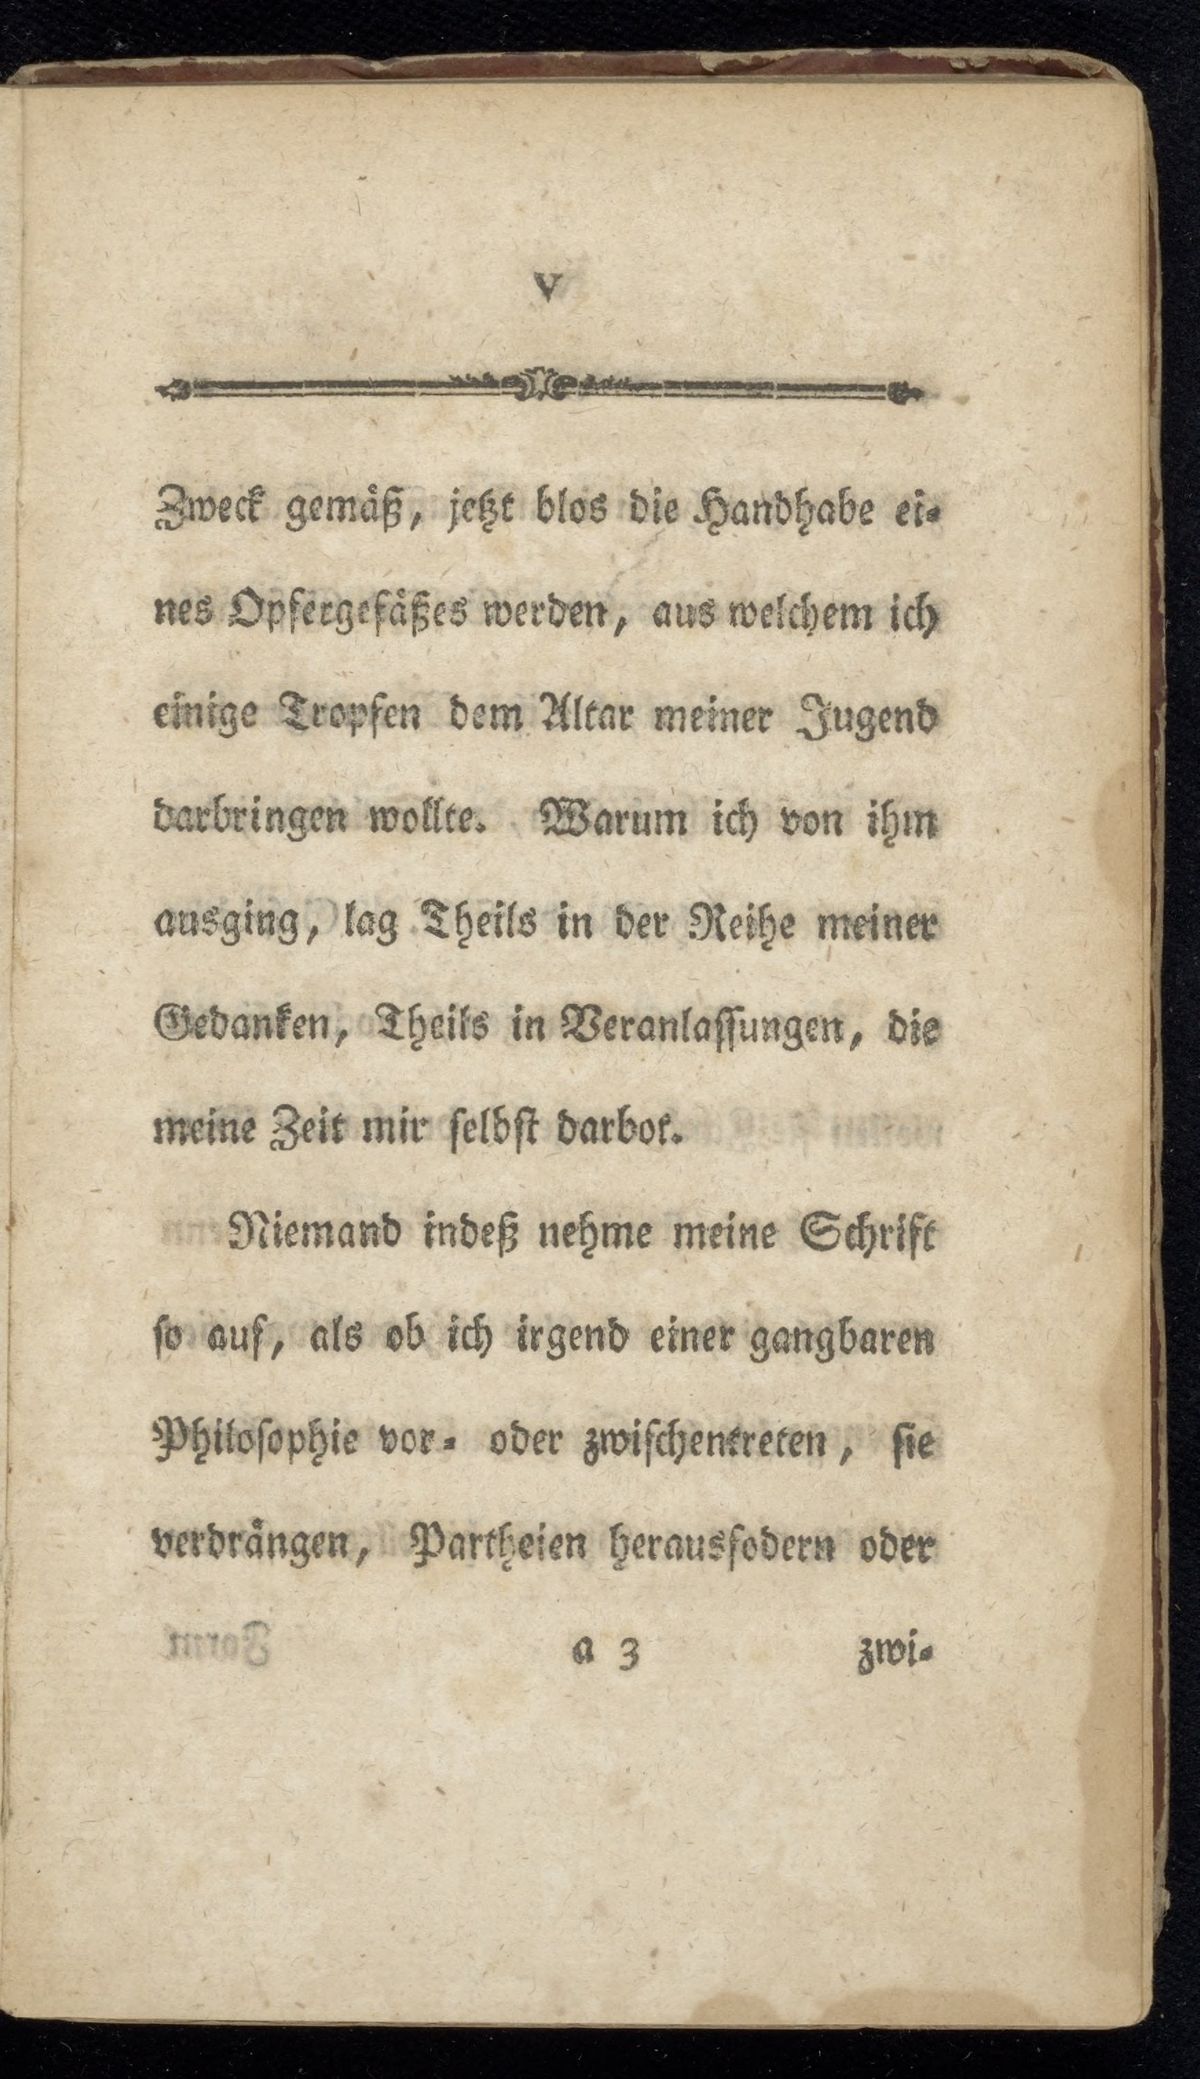 V
Zweck gemäß, jetzt blos die Handhabe ei-
nes Opfergefäßes werden, aus welchem ich
einige Tropfen dem Altar meiner Jugend
darbringen wollte. Warum ich von ihm
ausging, lag Theils in der Reihe meiner
Gedanken, Theils in Veranlassungen, die
meine Zeit mir selbst darbot.
Niemand indeß nehme meine Schrift
so auf, als ob ich irgend einer gangbaren
Philosophie vor- oder zwischentreten, sie
verdrängen, Partheien herausfodern oder
a 3 zwi-